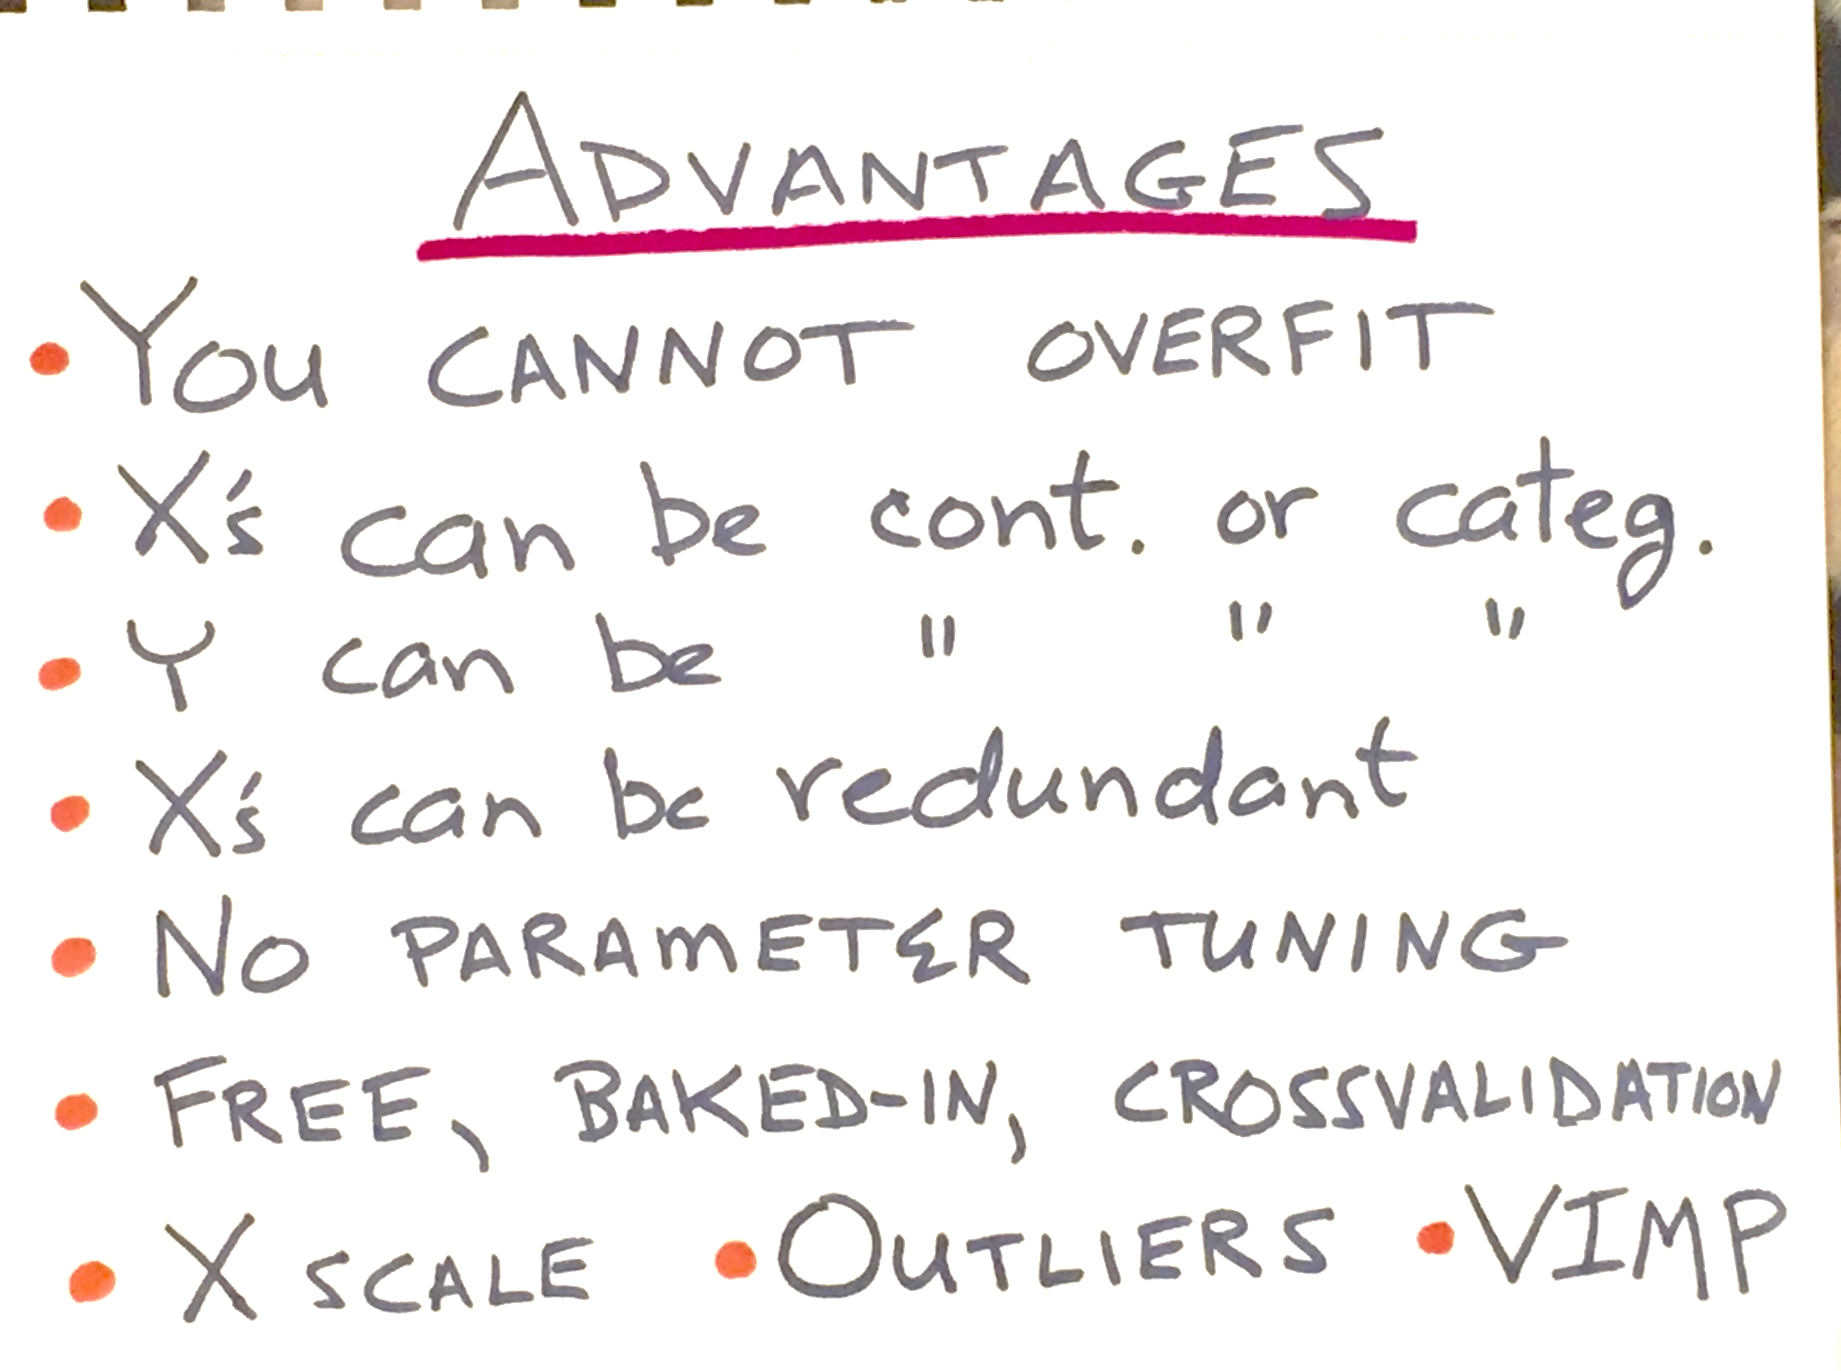 ADVANTAGES
• YOU CANNOT OVERFIT
• X's can be cont. or categ.
• Y can be " " "
• X's can be redundant
• NO PARAMETER TUNING
• FREE, BAKED-IN, CROSSVALIDATION
• X SCALE • OUTLIERS • VIMP